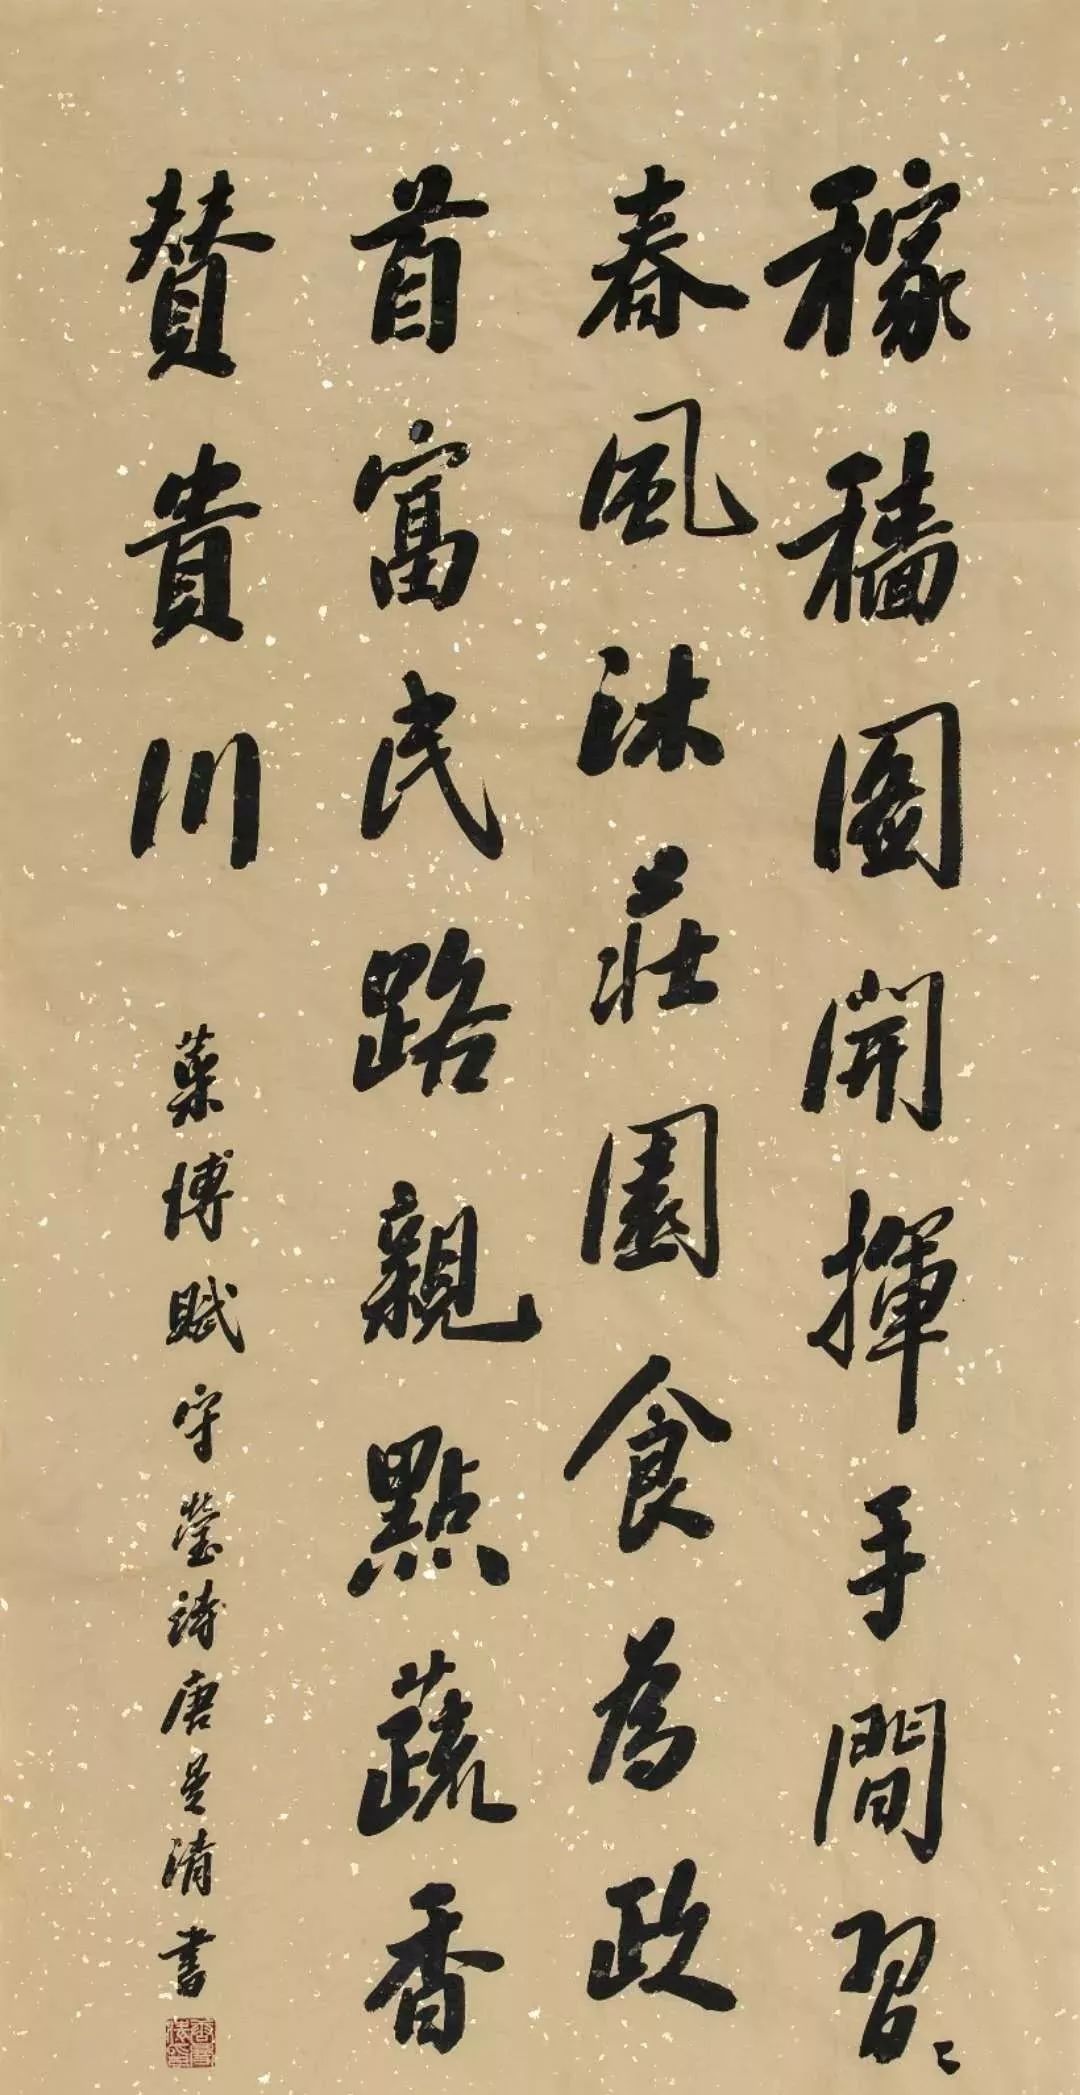 稼穡圖開揮手間習〻
春風沐莊園食為政
首富民路親點蔬香
贊貴川
菜博賦守瑩詩唐是清書